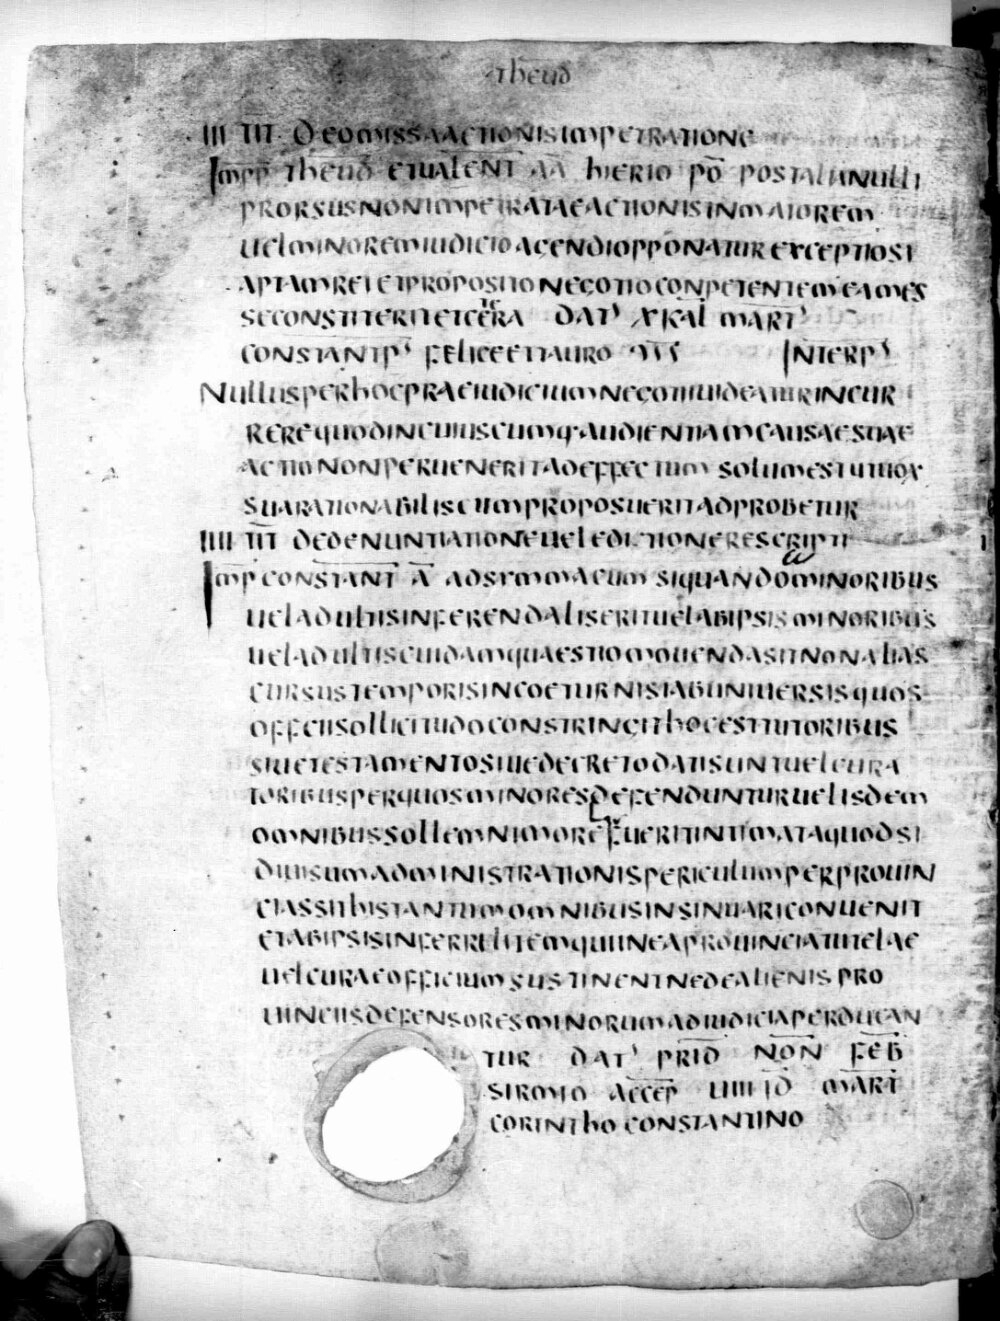 theud
III TIT DEOMISSAACTIONISIMPETRATIONE
Impp theud etualent aa hierio po postal nulli
prorsusnonimpetrataeactionisinmaiorem
uelminoremiudicioagendiopponaturexceptiosi
aptamreietpropositionegotioconpetentemeames
seconstiteritetcera dat' X kal mart'
constantp' feliceettauro Interp'
Nullusperhocpraeiudiciumnegotiiuideaturincur
rerequodincuiuscumq·audientiamcausaesuae
actiononperueneritadeffectum solumestutmox
suarationabiliscumproposueritadprobetur
IIII TIT dedenuntiationeueledictionerescripti
Imp constant a adsymmacum siquandominoribus
ueladultisinferendaliserituelabipsisminoribus
ueladultiscuidamquaestiomouendasitnonalias
cursustemporisincoeturnisiabuniuersisquos
officiisollicitudoconstringithocesttutoribus
siuetestamentosiuedecretodatisuntuelcura
toribusperquosminoresdefendunturuelisdem
omnibussollemnimorefueritintimataquodsi
diuisumadministrationispericulumperprouin
ciassitsubstantiumomnibusinsinuariconuenit
etabipsisinferrilitemquiineaprouinciatutelae
uelcuraeofficiumsustinentnedealienis pro
uinciisdefensoresminorumadiudiciaperducan
tur dat' prid non feb
sirmio accep uiiii id mart
corintho constantino